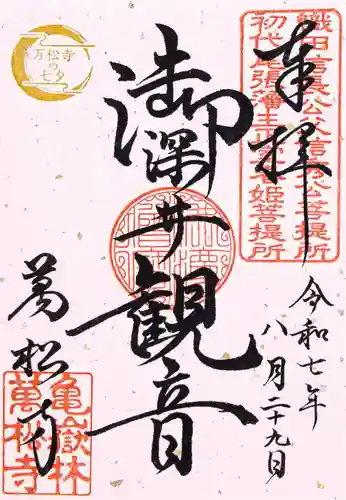 奉拝
織田信長公父信秀公菩提所
初代尾張藩主正室春姫菩提所
令和七年
八月二十九日
御深井観音
万松寺
の
七夕
萬松寺
亀嶽林
萬松寺